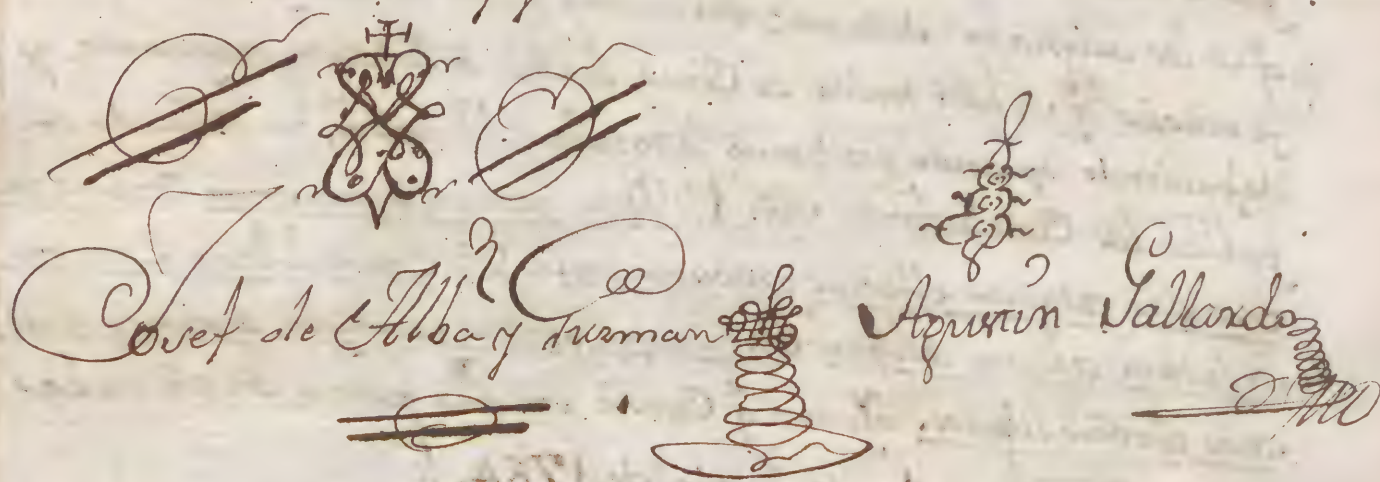 Josef de Alba y Guzman Agustin Gallardo